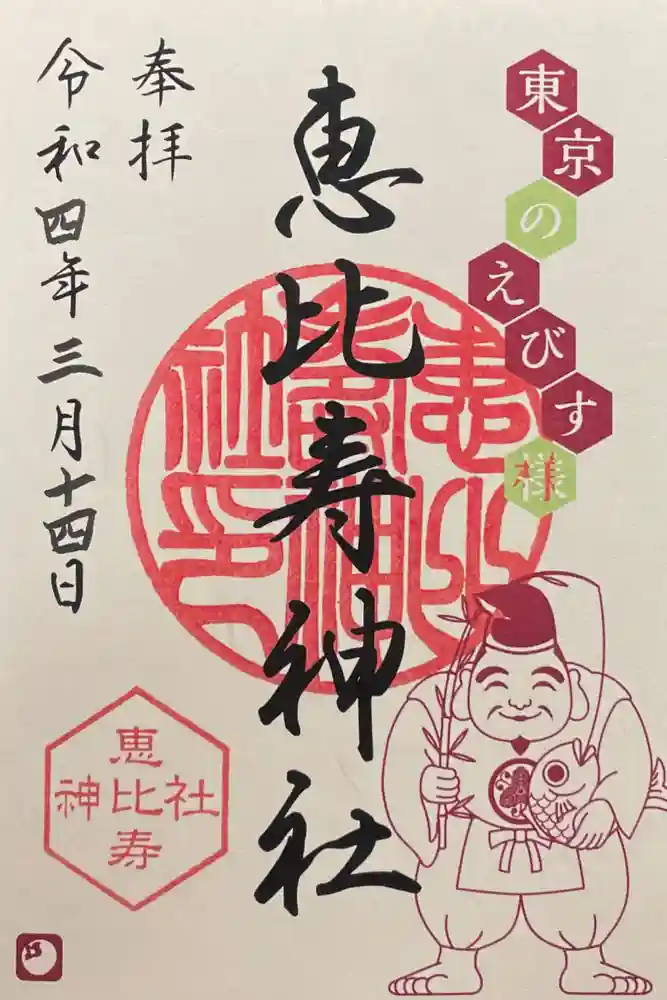 東京のえびす様
恵比寿神社
奉拝
令和四年三月十四日
恵比寿神社印
恵
神比社
寿